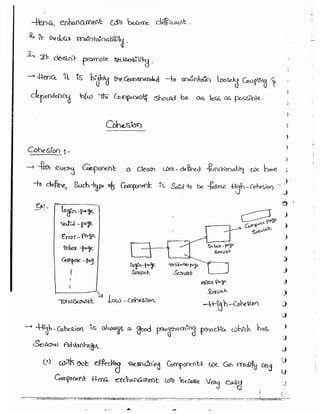 → Hence, enhancement will become difficult.
2. It reduces maintainability.
3. It doesn't promote reusability.
→ Hence it is highly recommended to maintain loosely coupling &
dependency b/w the components should be as less as possible.
Cohesion
Cohesion :-
→ For every component a clear well-defined functionality we have
to define, such type of component is said to be follow High-Cohesion.
Ex:-
login-page
valid-page
Error-page
Inbox-page
Compose-page
Total Servlet
Low-Cohesion
login-page
Servlet
Validation page
Servlet
Inbox-page
Servlet
Compose page
Servlet
error page
Servlet
High-Cohesion
→ High-Cohesion is always a good programming practice which has
several advantages.
(1) without effecting remaining components we can modify any
component Hence enhancement will become very easy